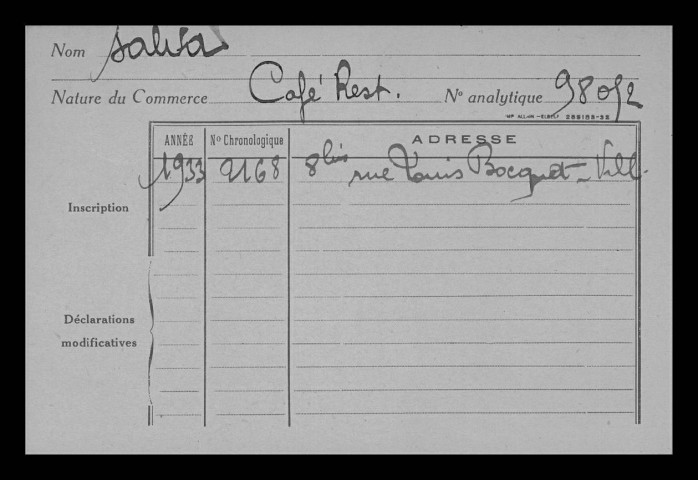 Nom Salva
Nature du Commerce Café Rest. No analytique 98052
IMP ALLAIN - ELBEUF 289158-32
ANNÉE No Chronologique ADRESSE
1933 2168 8bis rue Louis Bocquet - Vill.
Inscription
Déclarations
modificatives